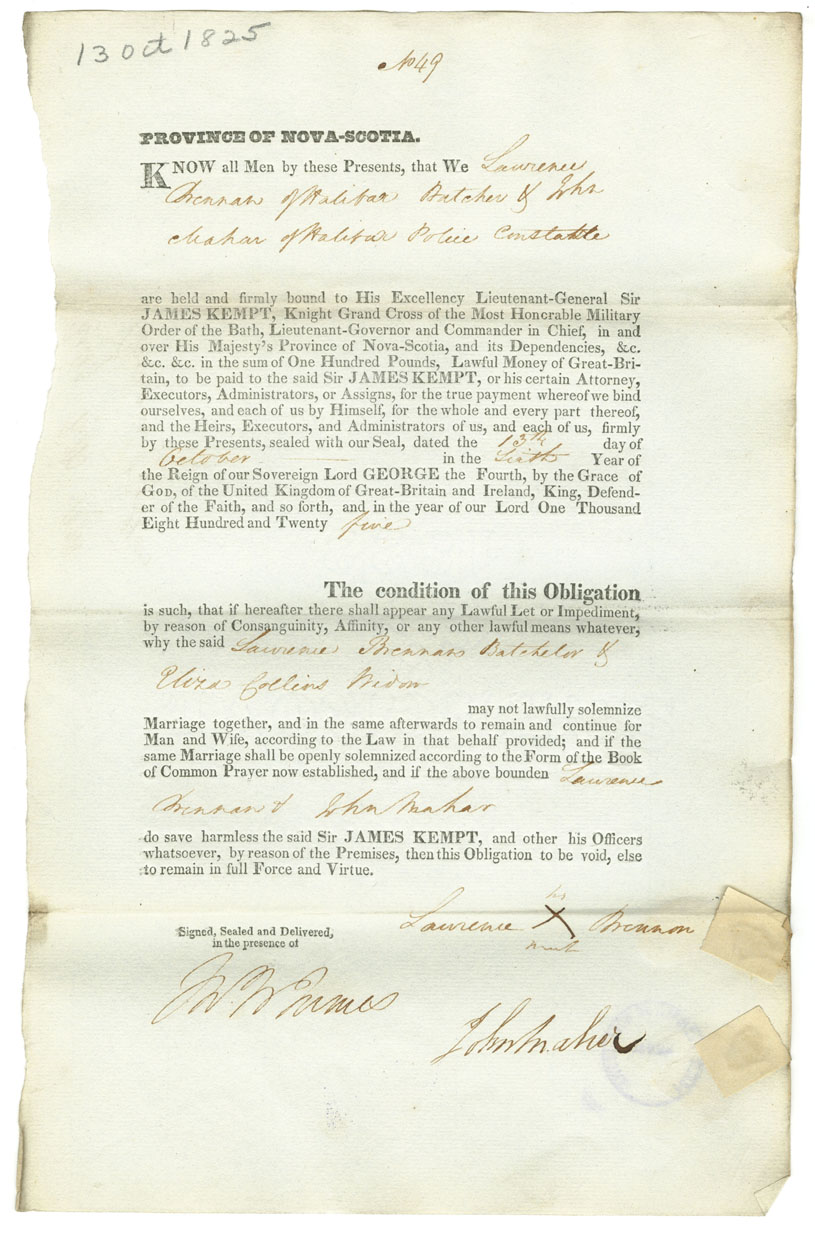 13 Oct 1825
No 49
PROVINCE OF NOVA-SCOTIA.
KNOW all Men by these Presents, that We Lawrence
Brennan of Halifax Butcher & John
Mahar of Halifax Police Constable
are held and firmly bound to His Excellency Lieutenant-General Sir
JAMES KEMPT, Knight Grand Cross of the Most Honorable Military
Order of the Bath, Lieutenant-Governor and Commander in Chief, in and
over His Majesty's Province of Nova-Scotia, and its Dependencies, &c.
&c. &c. in the sum of One Hundred Pounds, Lawful Money of Great-Bri-
tain, to be paid to the said Sir JAMES KEMPT, or his certain Attorney,
Executors, Administrators, or Assigns, for the true payment whereof we bind
ourselves, and each of us by Himself, for the whole and every part thereof,
and the Heirs, Executors, and Administrators of us, and each of us, firmly
by these Presents, sealed with our Seal, dated the 13th day of
October — in the Sixth Year of
the Reign of our Sovereign Lord GEORGE the Fourth, by the Grace of
GOD, of the United Kingdom of Great-Britain and Ireland, King, Defend-
er of the Faith, and so forth, and in the year of our Lord One Thousand
Eight Hundred and Twenty five
The condition of this Obligation
is such, that if hereafter there shall appear any Lawful Let or Impediment,
by reason of Consanguinity, Affinity, or any other lawful means whatever,
why the said Lawrence Brennan Batchelor &
Eliza Collins Widow
may not lawfully solemnize
Marriage together, and in the same afterwards to remain and continue for
Man and Wife, according to the Law in that behalf provided; and if the
same Marriage shall be openly solemnized according to the Form of the Book
of Common Prayer now established, and if the above bounden Lawrence
Brennan & John Mahar
do save harmless the said Sir JAMES KEMPT, and other his Officers
whatsoever, by reason of the Premises, then this Obligation to be void, else
to remain in full Force and Virtue.
his
Lawrence X Brennon
mark
Signed, Sealed and Delivered,
in the presence of
John Maher